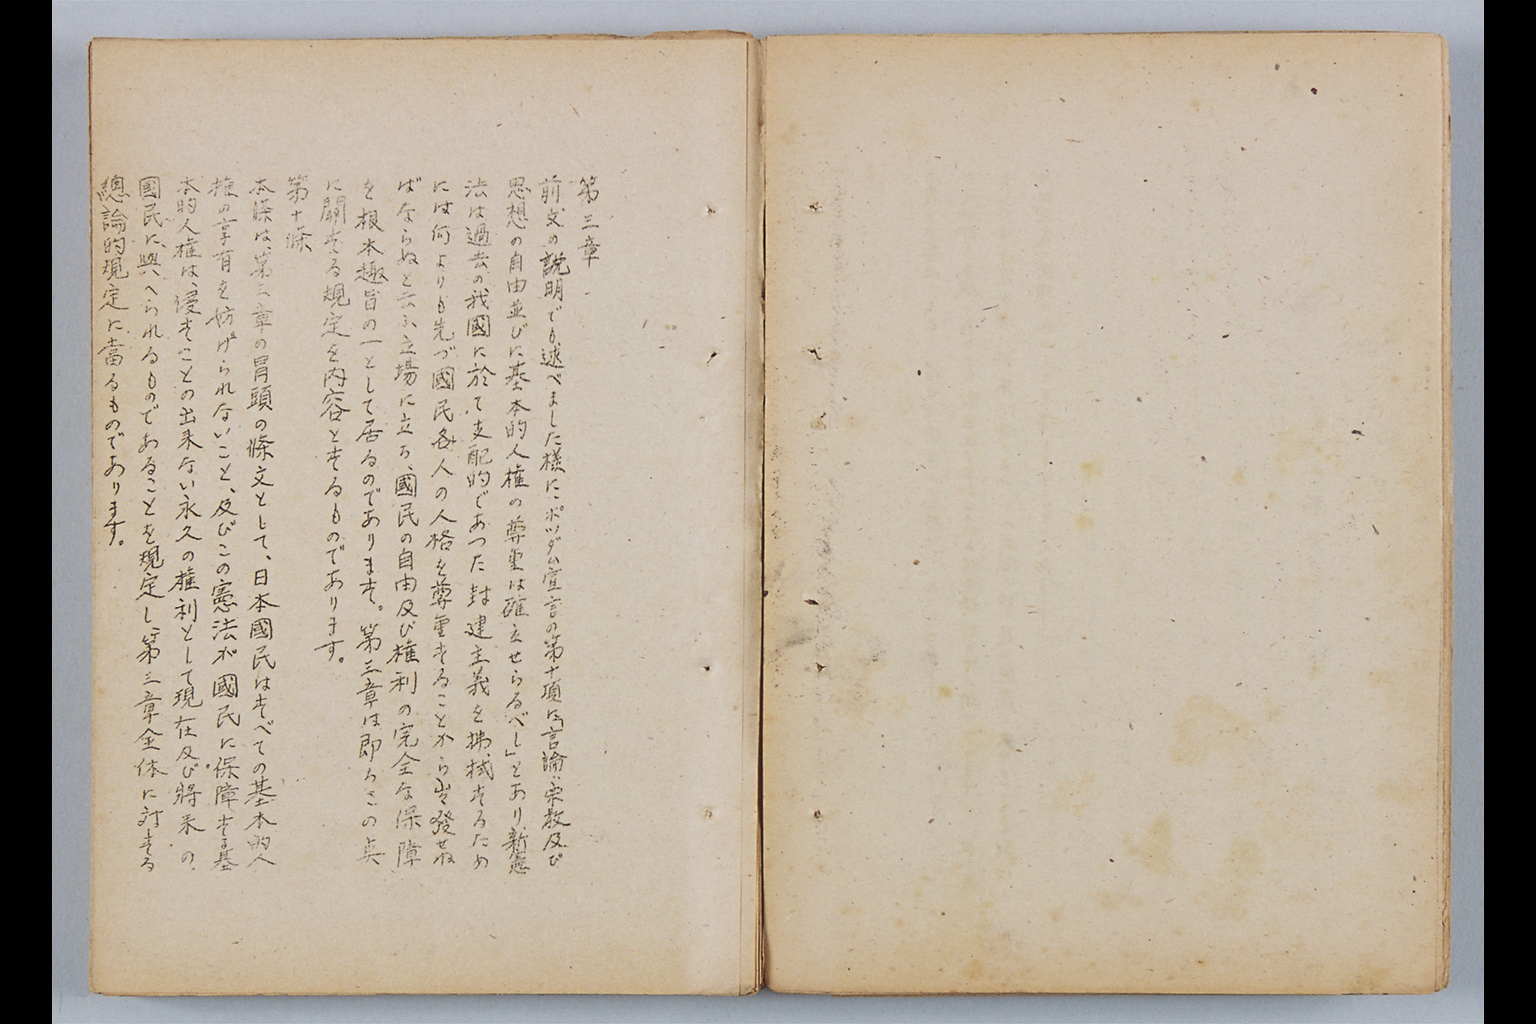 第三章
前文の説明でも述べました様に、ポツダム宣言の第十項に「言論、宗教及び
思想の自由並びに基本的人権の尊重は確立せらるべし」とあり新憲
法は過去の我國に於て支配的であつた封建主義を拂拭するため
には何よりも先づ國民各人の人格を尊重することから出發せね
ばならぬと云ふ立場に立ち、國民の自由及び権利の完全な保障
を根本趣旨の一として居るのであります。第三章は即ちこの点
に関する規定を内容とするものであります。
第十條
本條は、第三章の冒頭の條文として、日本國民はすべての基本的人
権の享有を妨げられないこと、及びこの憲法が國民に保障する基
本的人権は、侵すことの出来ない永久の権利として現在及び將来の
國民に、與へられるものであることを規定し、第三章全体に対する
總論的規定に當るものであります。